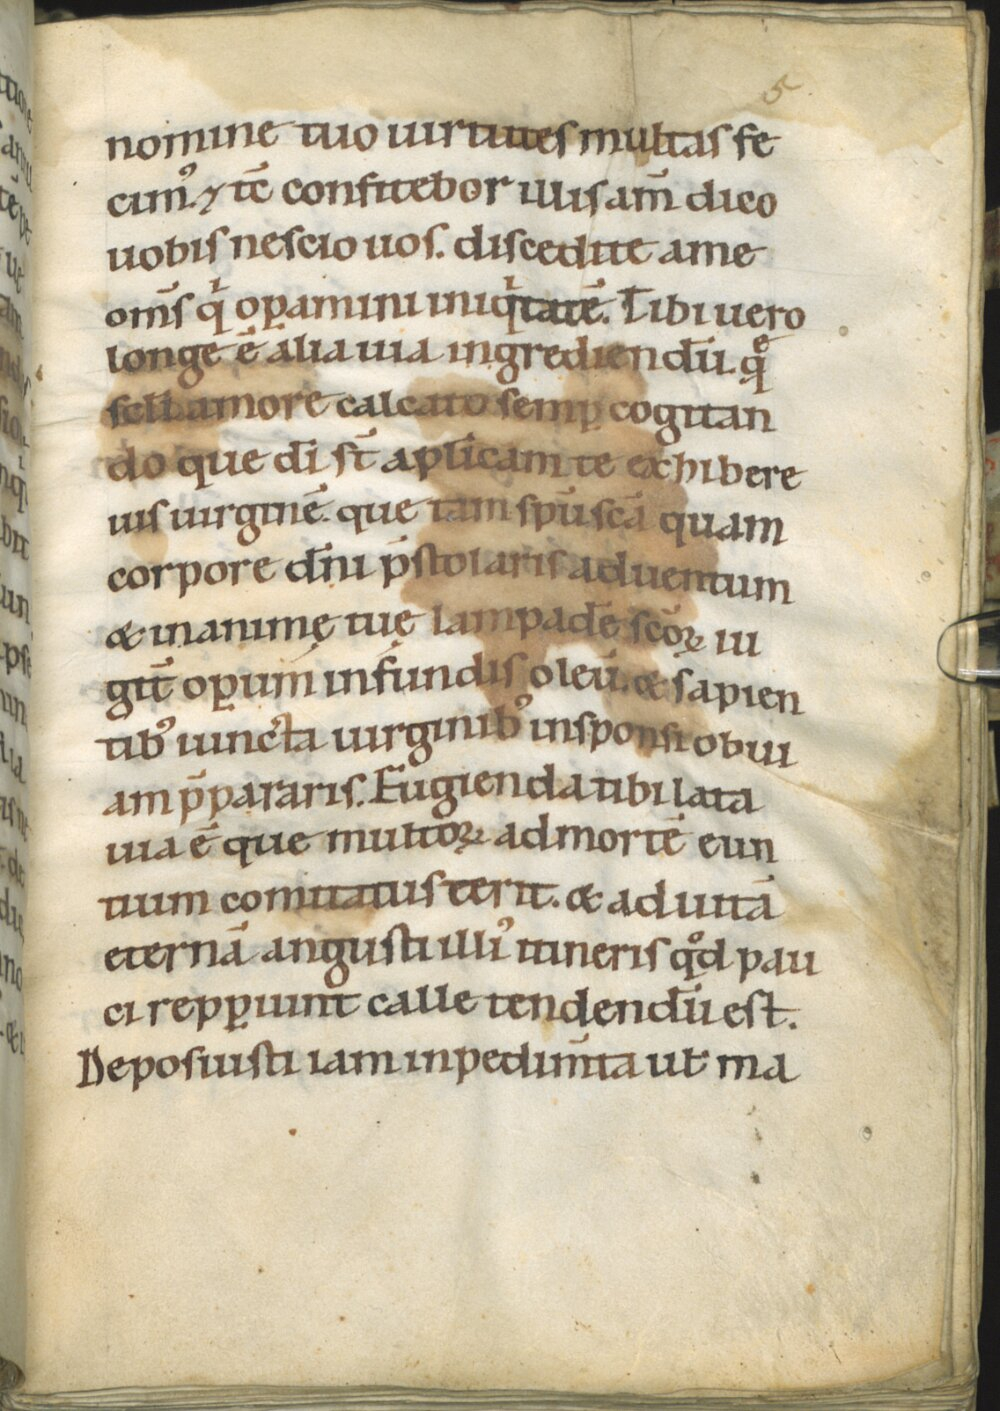 5
nomine tuo uirtutes multas fe
cimꝰ. ⁊ tc̄ confitebor illis am̄ dico
uobis nescio uos. discedite a me
om̄s qͥ oꝑamini iniqͥtatē. Tibi uero
longe ē alia uia ingrediendū. qͤ
scl̄i amore calcato semꝑ cogitan
do que dī st̄ aplicam te exhibere
uis uirginē. que tam spū scā quam
corpore dn̄i p̄stolaris aduentum
& in animę tuę lampadē scōꝝ iu
git̄ oꝑum infundis oleū. & sapien
tibꝰ iuncta uirginibꝰ in sponsi obui
am p̄pararis. Fugienda tibi lata
uia ē que multoꝝ ad mortē eun
tium comitatus terit. & ad uitā
eternā angusti illiꝰ itineris qͦd pau
ci repꝑiunt calle tendendū est.
Deposuisti iam inpedim̄ta ut ma